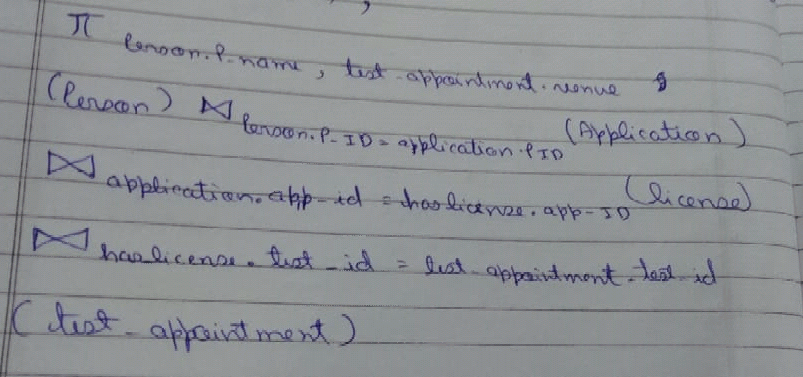 π Person.P-name, test-appointment.venue
(Person) ⋈ Person.P-ID = application.PID (Application)
⋈ application.app-id = haslicense.app-ID (license)
⋈ haslicense.test-id = test-appointment.test-id
(test-appointment)